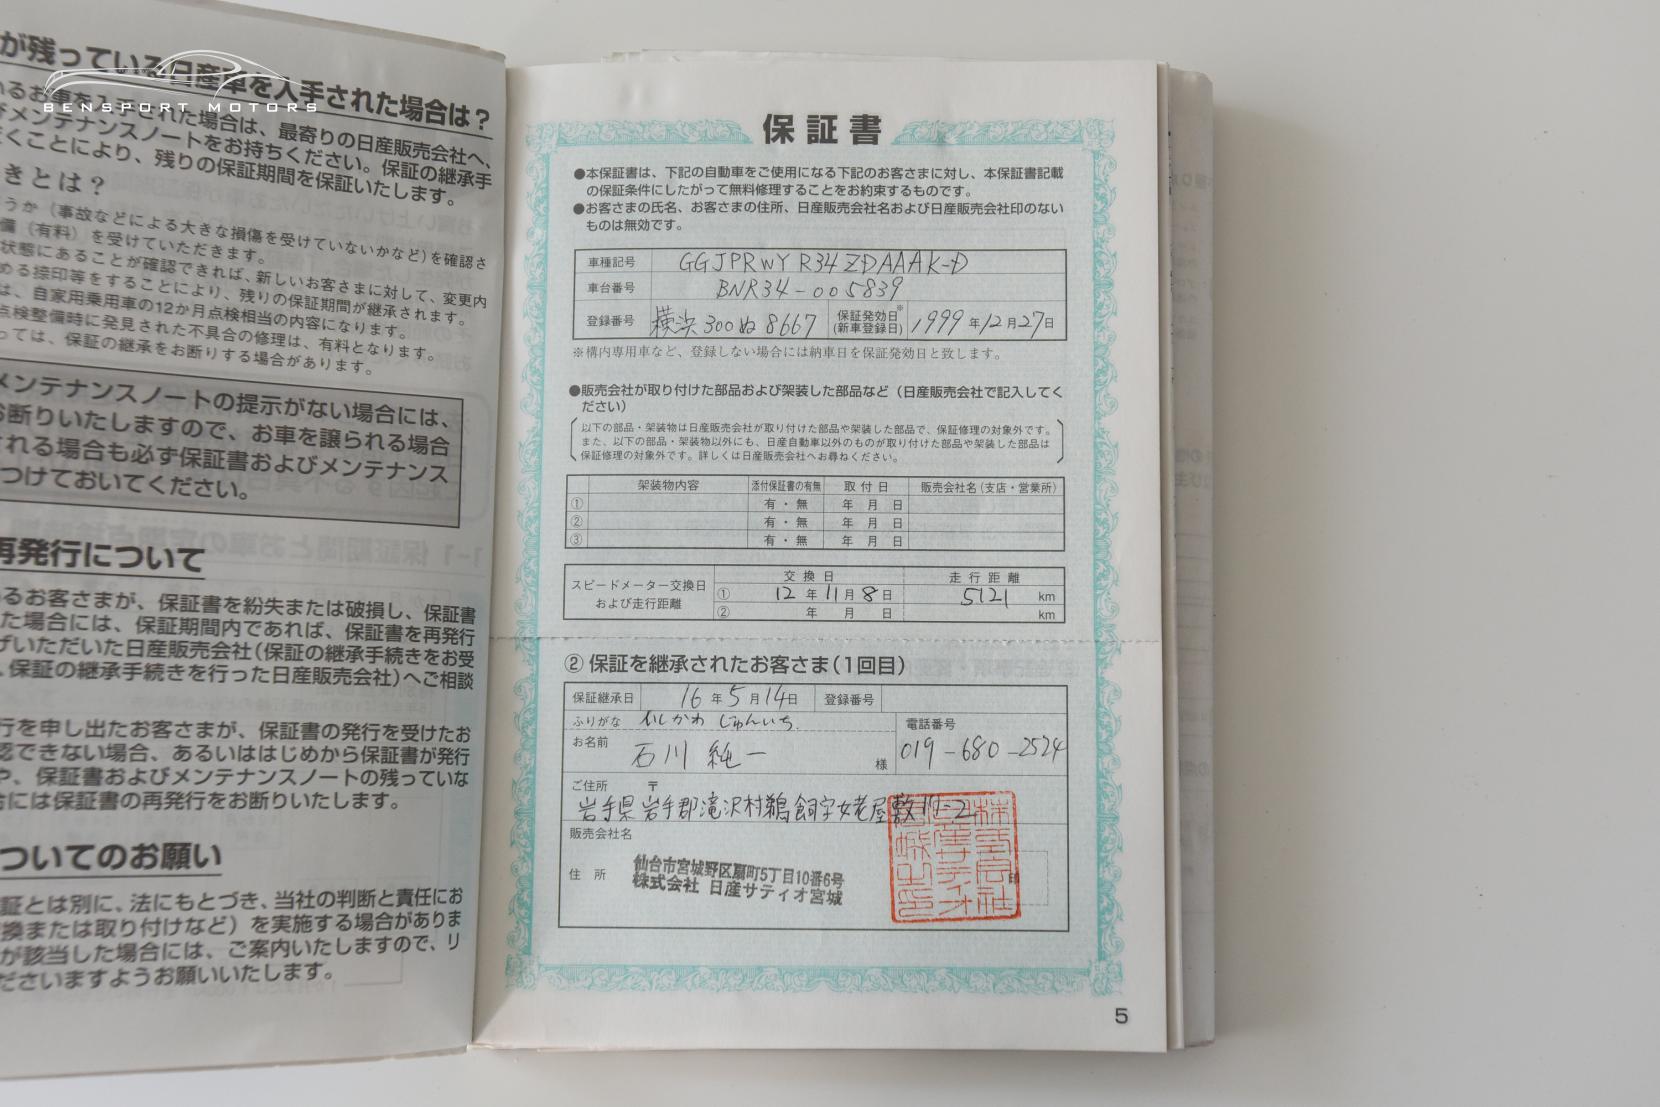 BENSPORT MOTORS
が残っている日産車を入手された場合は?
いるお車を入手された場合は、最寄りの日産販売会社へ、
びメンテナンスノートをお持ちください。保証の継承手
だくことにより、残りの保証期間を保証いたします。
きとは?
うか(事故などによる大きな損傷を受けていないかなど)を確認さ
備(有料)を受けていただきます。
状態にあることが確認できれば、新しいお客さまに対して、変更内
める捺印等をすることにより、残りの保証期間が継承されます。
は、自家用乗用車の12か月点検相当の内容になります。
点検整備時に発見された不具合の修理は、有料となります。
っては、保証の継承をお断りする場合があります。
メンテナンスノートの提示がない場合には、
お断りいたしますので、お車を譲られる場合
される場合も必ず保証書およびメンテナンス
つけておいてください。
再発行について
るお客さまが、保証書を紛失または破損し、保証書
た場合には、保証期間内であれば、保証書を再発行
げいただいた日産販売会社(保証の継承手続きをお受
、保証の継承手続きを行った日産販売会社)へご相談
行を申し出たお客さまが、保証書の発行を受けたお
認できない場合、あるいははじめから保証書が発行
や、保証書およびメンテナンスノートの残っていな
合には保証書の再発行をお断りいたします。
ついてのお願い
証とは別に、法にもとづき、当社の判断と責任にお
換または取り付けなど)を実施する場合がありま
が該当した場合には、ご案内いたしますので、リ
ださいますようお願いいたします。
保証書
●本保証書は、下記の自動車をご使用になる下記のお客さまに対し、本保証書記載
の保証条件にしたがって無料修理することをお約束するものです。
●お客さまの氏名、お客さまの住所、日産販売会社名および日産販売会社印のない
ものは無効です。
車種記号 GGJPRWY R34ZDAAAK-D
車台番号 BNR34-005839
登録番号 横浜300ぬ8667 保証発効日※ (新車登録日) 1999年12月27日
※構内専用車など、登録しない場合には納車日を保証発効日と致します。
●販売会社が取り付けた部品および架装した部品など(日産販売会社で記入してく
ださい)
以下の部品・架装物は日産販売会社が取り付けた部品や架装した部品で、保証修理の対象外です。
また、以下の部品・架装物以外にも、日産自動車以外のものが取り付けた部品や架装した部品は
保証修理の対象外です。詳しくは日産販売会社へお尋ねください。
架装物内容 添付保証書の有無 取付日 販売会社名(支店・営業所)
① 有・無 年 月 日
② 有・無 年 月 日
③ 有・無 年 月 日
スピードメーター交換日 および走行距離 交換日 走行距離
① 12年11月8日 5121 km
② 年 月 日 km
②保証を継承されたお客さま(1回目)
保証継承日 16年5月14日 登録番号
ふりがな いしかわ じゅんいち 電話番号
お名前 石川 純一 様 019-680-2524
ご住所 〒
岩手県岩手郡滝沢村鵜飼字女老屋敷17-2
販売会社名
住所 仙台市宮城野区扇町5丁目10番6号
株式会社 日産サティオ宮城
印
5